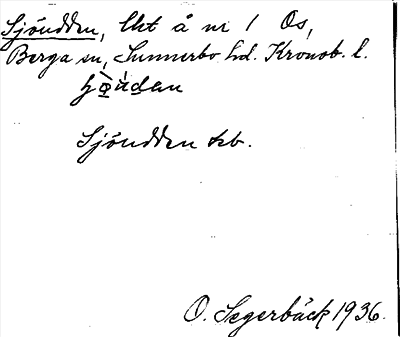 Sjöudden, lht å nr 1 Os,
Berga sn, Sunnerbo hd. Kronob. l.
Sjöudden tsb.
O. Segerbäck 1936.